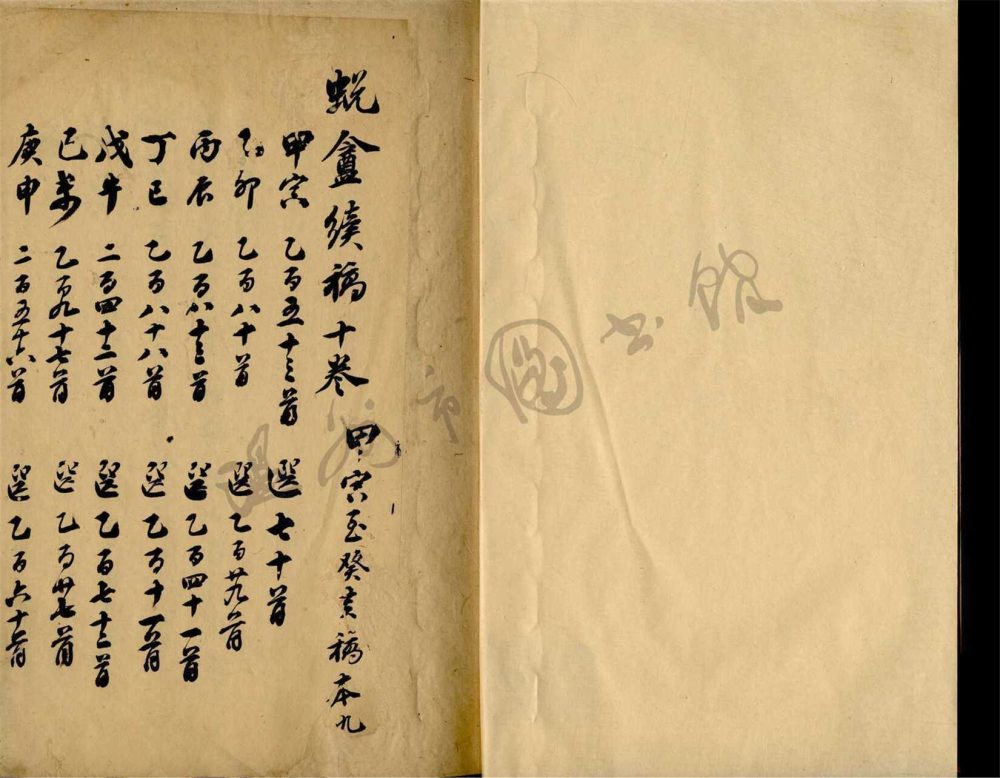 蜕盦續稿十卷 甲寅至癸亥稿本九
甲寅 乙百五十三首 選七十首
乙卯 乙百八十首 選乙百廿九首
丙辰 乙百八十三首 選乙百四十一首
丁巳 乙百八十八首 選乙百十一首
戊午 二百四十二首 選乙百七十三首
己未 乙百九十七首 選乙百卅七首
庚申 二百五十六首 選乙百六十首
溫州市圖书館